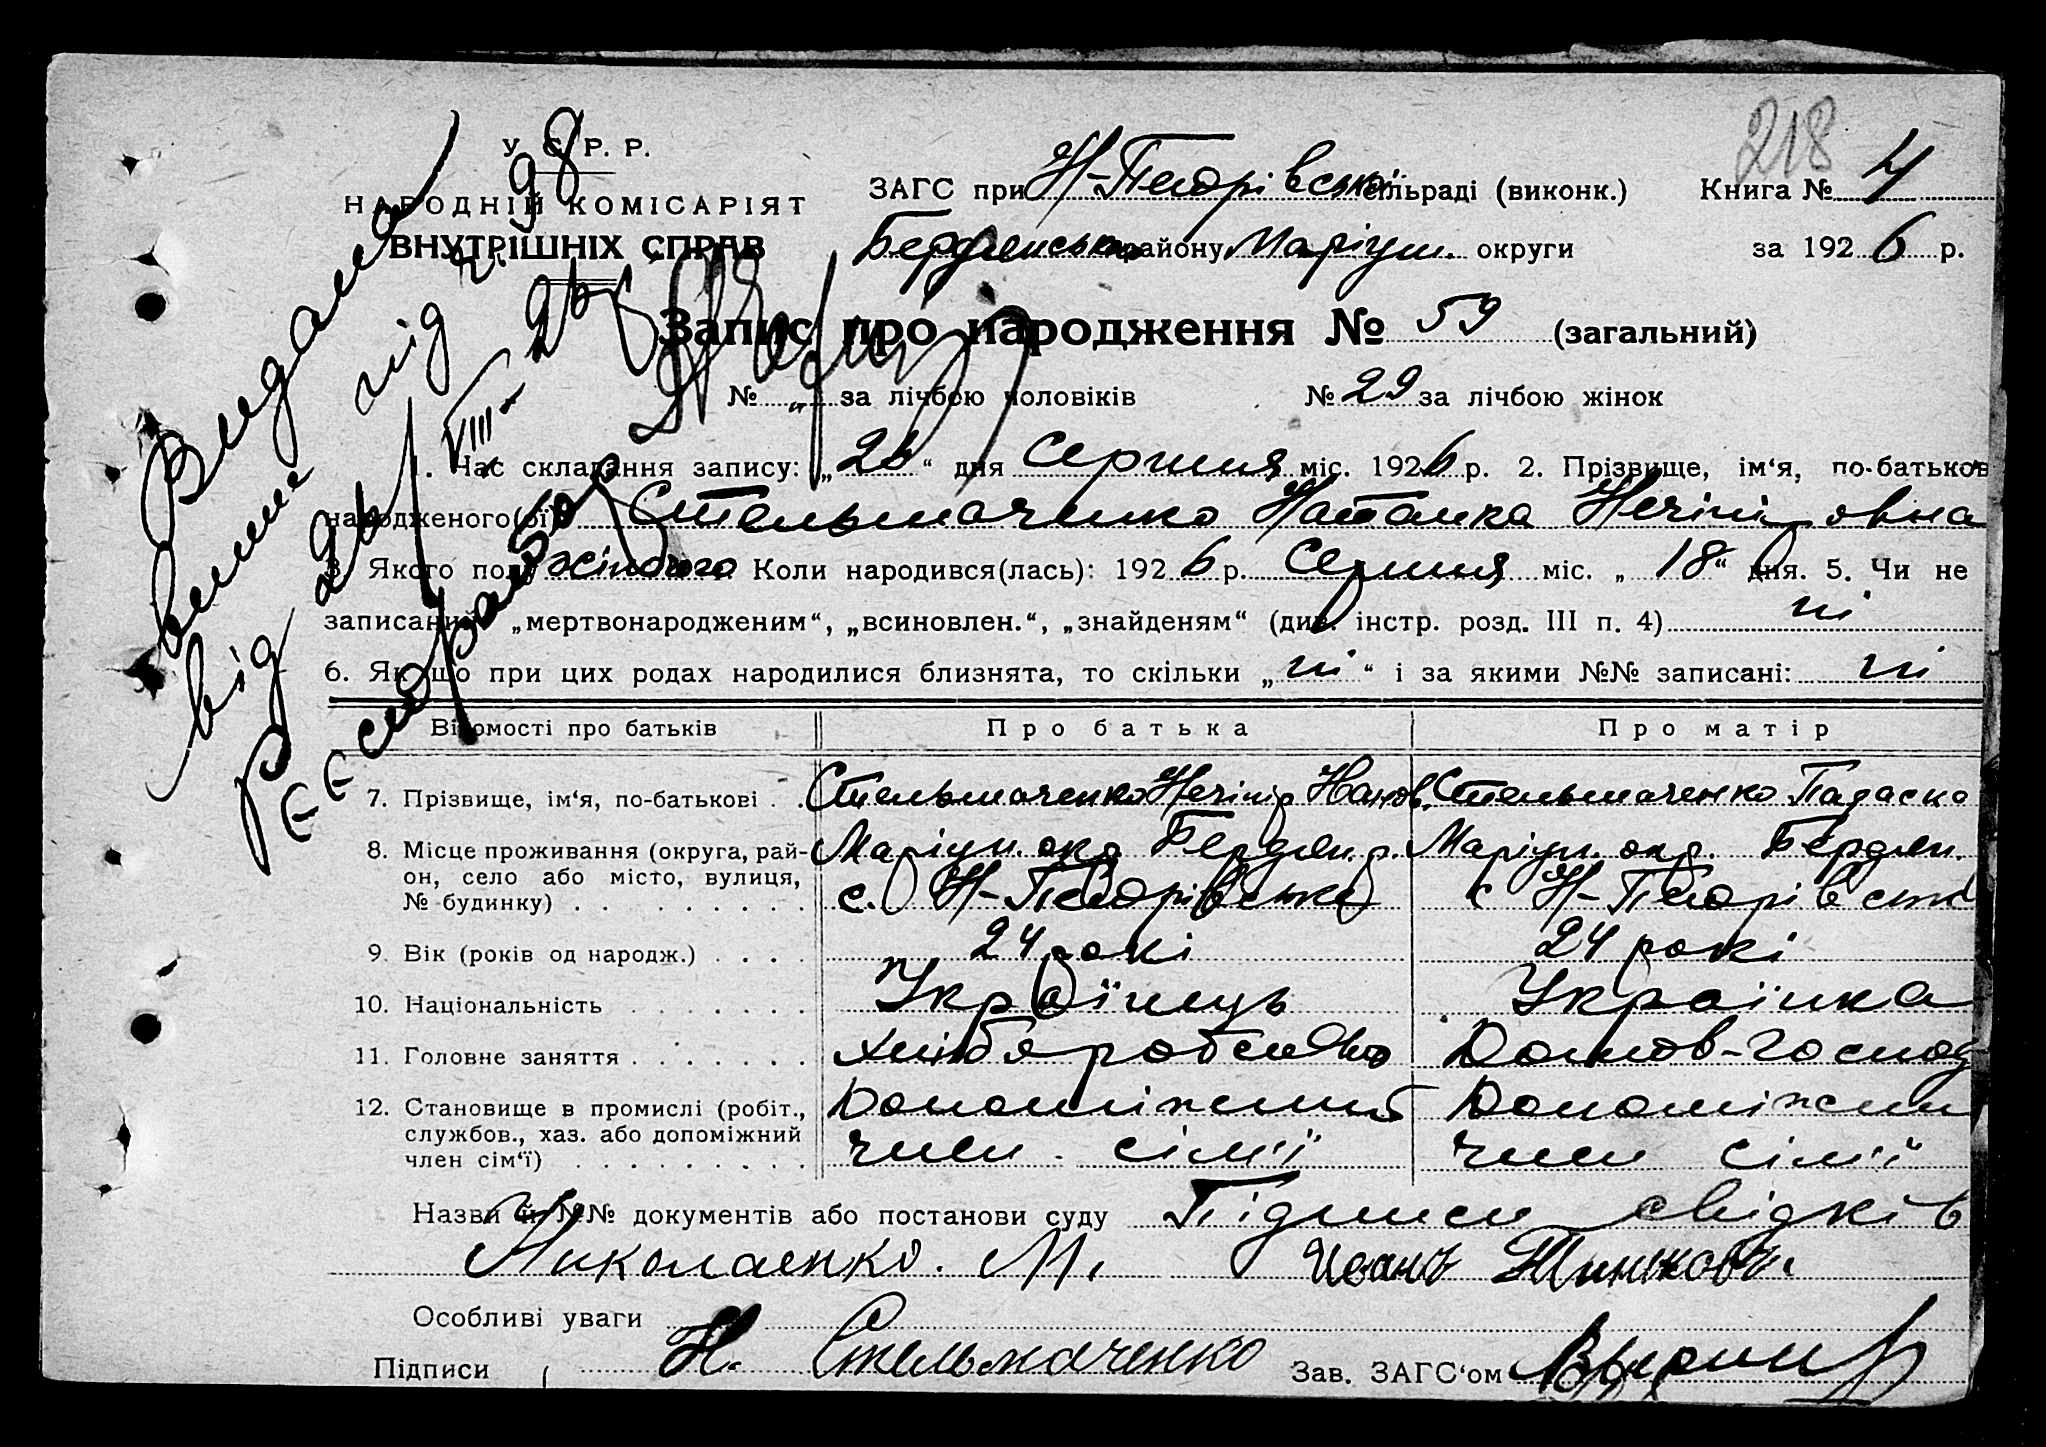 218
У. С. Р. Р.
НАРОДНІЙ КОМІСАРІЯТ
ВНУТРІШНІХ СПРАВ
ЗАГС при Н-Петрівській сільраді (виконк.) Книга № 4
Бердянського району Маріуп. округи за 1926 р.
Запис про народження № 59 (загальний)
№ „ за лічбою чоловіків № 29 за лічбою жінок
1. Час складання запису: „26“ дня Серпня міс. 1926 р. 2. Прізвище, ім‘я, по-батьков
народженого(ої) Стельмаченко Наталка Нечіпіровна
3. Якого полу жіночого Коли народився(лась): 1926 р. Серпня міс. „18“ дня. 5. Чи не
записаний „мертвонародженим“, „всиновлен.“, „знайденям“ (див. інстр. розд. III п. 4) ні
6. Якщо при цих родах народилися близнята, то скільки „ні“ і за якими №№ записані: ні
Відомості про батьків Про батька Про матір
7. Прізвище, ім‘я, по-батькові . . Стельмаченко Нечіпір Стельмаченко Параска
8. Місце проживання (округа, рай- Маріуп. окр. Бердян. р. Маріуп. окр. Бердян.
он, село або місто, вулиця, с. Н-Петрівське с Н-Петрівськ
№ будинку)
9. Вік (років од народж.) . . . . 24 рокі 24 рокі
10. Національність . . . . . . . Українець Українка
11. Головне заняття . . . . . . . Хлібяробство Домов-господ
12. Становище в промислі (робіт., Допоміжний Допоміжни
службов., хаз. або допоміжний член сім'ї член сім'ї
член сім‘ї) . . . . . . . . .
Назви й №№ документів або постанови суду Підписи свідків
Николаенко. М. Иванъ
Особливі уваги
Підписи Н. Стельмаченко Зав. ЗАГС‘ом
Видана
під ч. 98
від 26/VIII-26 р.